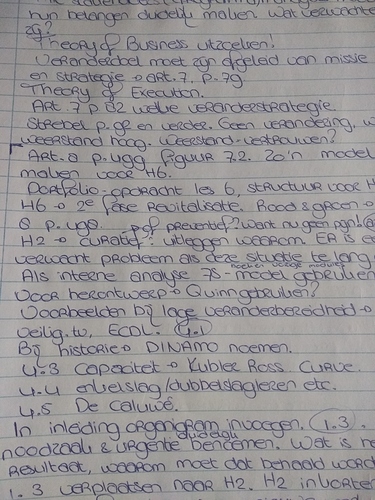 hun belangen duidelijk maken. Wat verwachten
zij?
Theory of Business uitzoeken!
Veranderdoel moet zijn afgeleid van missie
en strategie → art. 7, p. 79
Theory of Execution.
Art. 7 p. 82 welke veranderstrategie.
Strebel p. 92 en verder. Geen verandering, w
weerstand hoog. Weerstand-vertrouwen?
Art. 8 p. 499 figuur 7.2. Zo'n model
maken voor H6.
Portfolio-opdracht les 6, structuur voor H
H6 → 2e fase Revitalisatie. Rood & groen →
8 p. 490. preventief? Want nu geen pgn!
H2 → curatief: uitleggen waarom. Er is e
verwacht probleem als deze situatie te lang
Als interne analyse 7S-model gebruiken
Voor herontwerp → Quinn gebruiken?
Voorbeelden bij lage veranderbereidheid →
veilig.tv, ECDL. 4.1
Bij historie → DINAMO noemen.
4.3 Capaciteit → Kubler Ross Curve.
4.4 enkelslag/dubbelslagleren etc.
4.5 De Caluwé.
In inleiding organigram invoegen. 1.3.
noodzaak & urgentie duidelijk benoemen. Wat is he
resultaat, waarom moet dat behaald word
1.3 verplaatsen naar H2. H2 inkorten